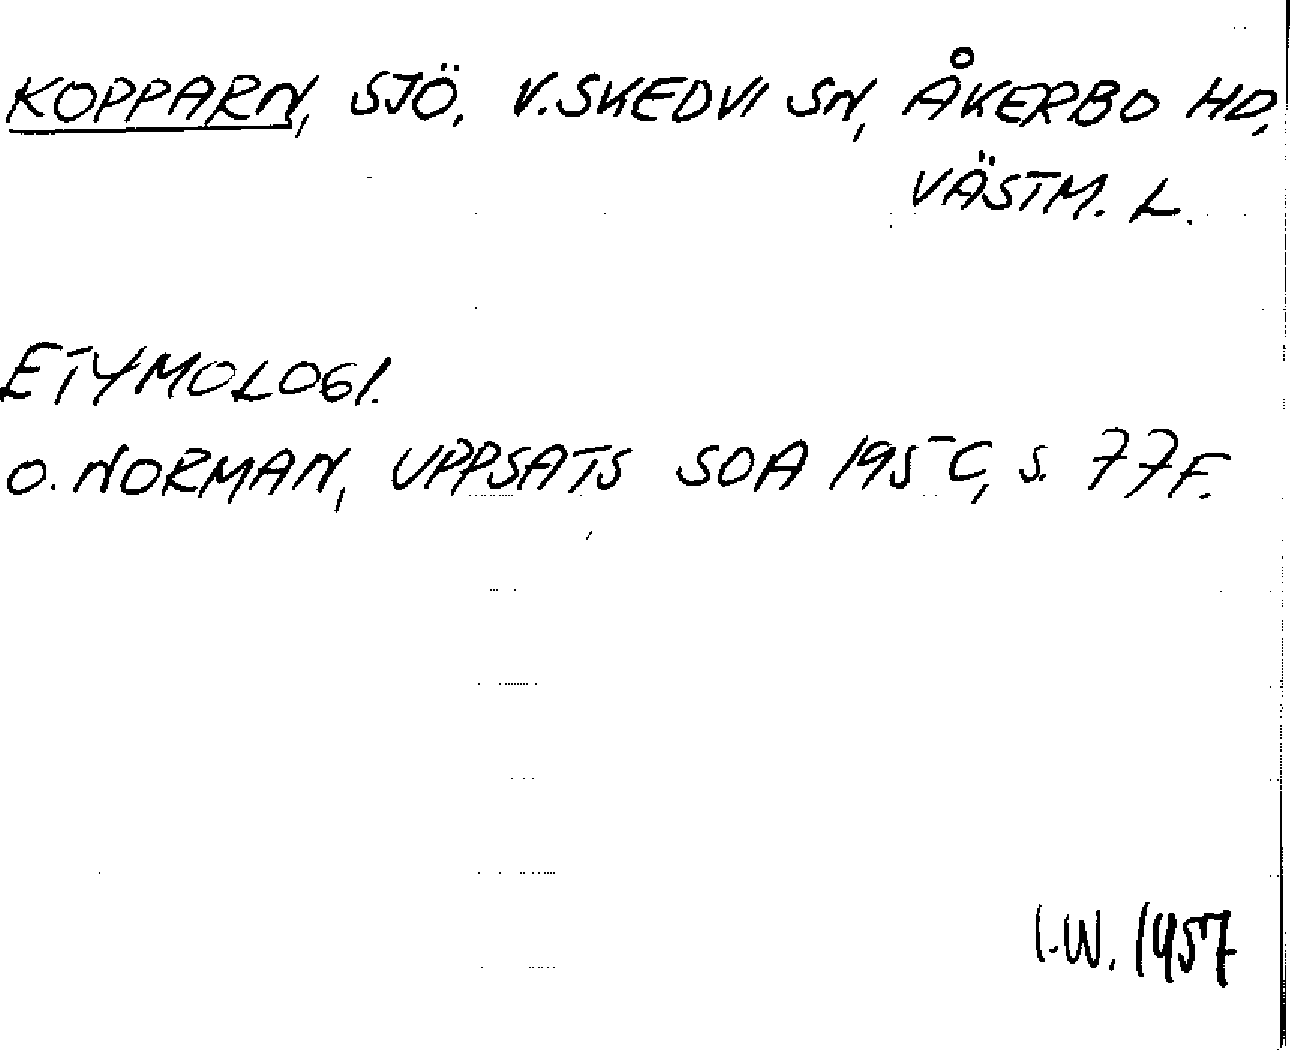 KOPPARN, SJÖ, V. SKEDVI SN, ÅKERBO HD,
VÄSTM. L.
ETYMOLOGI.
O. NORMAN, UPPSATS SOA 195 C, S. 77 F.
I.W. 1957